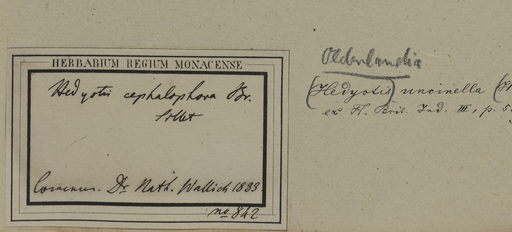 HERBARIUM REGIUM MONACENSE
Hedyotis cephalophora Br.
Commun. Dr. Nath. Wallich 1833
no 842
Oldenlandia
(Hedyotis) uncinella (H
ex Fl. Brit. Ind. III, p. 5